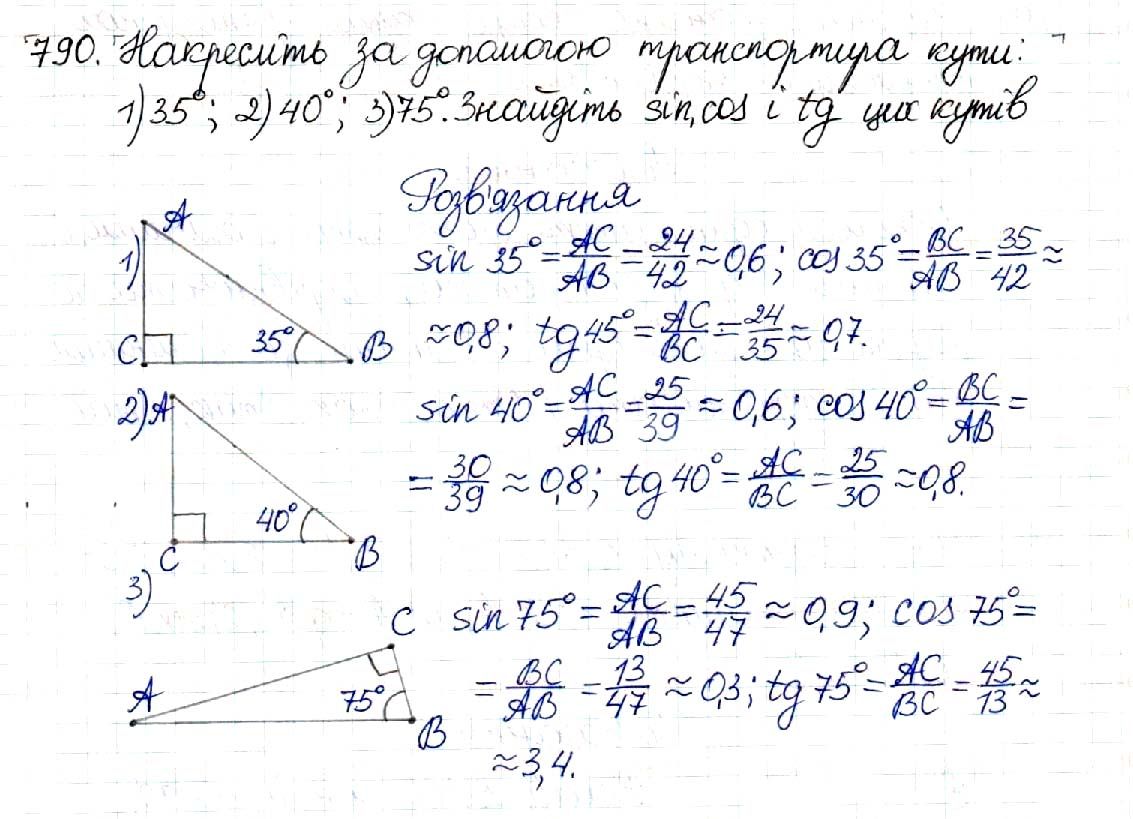 790. Накресліть за допомогою транспортира кути:
1) 35°; 2) 40°; 3) 75°. Знайдіть sin, cos і tg цих кутів
Розв'язання
1)
A
C
35°
B
sin 35° = AC/AB = 24/42 ≈ 0,6; cos 35° = BC/AB = 35/42 ≈
≈ 0,8; tg 45° = AC/BC = 24/35 ≈ 0,7.
2) A
40°
C
B
sin 40° = AC/AB = 25/39 ≈ 0,6; cos 40° = BC/AB =
= 30/39 ≈ 0,8; tg 40° = AC/BC = 25/30 ≈ 0,8.
3)
C
A
75°
B
sin 75° = AC/AB = 45/47 ≈ 0,9; cos 75° =
= BC/AB = 13/47 ≈ 0,3; tg 75° = AC/BC = 45/13 ≈
≈ 3,4.